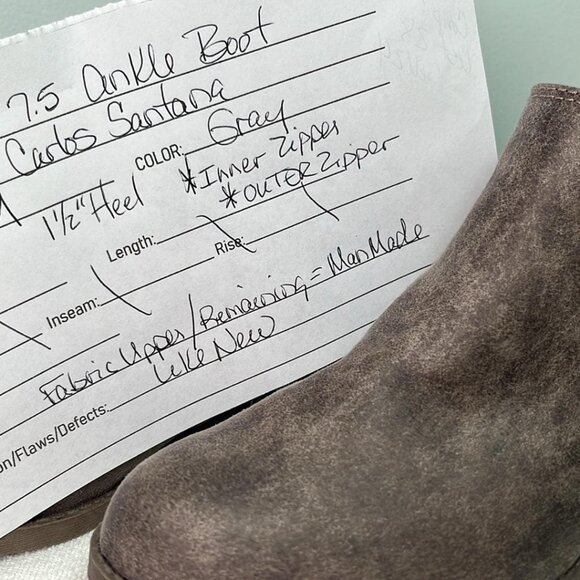 7.5 Ankle Boot
Carlos Santana
COLOR: Gray
1½" Heel *Inner Zipper
*OUTER Zipper
Length:
Rise:
Inseam:
Fabric Upper/Remaining=Man Made
Like New
on/Flaws/Defects: